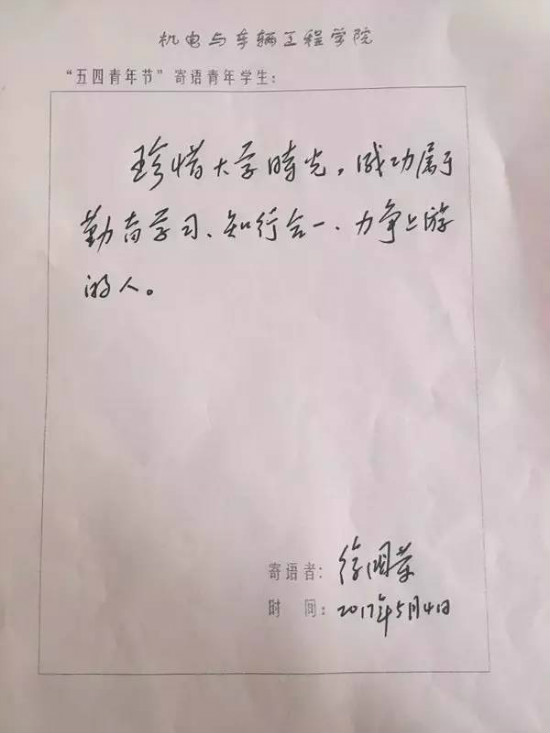 机电与车辆工程学院
“五四青年节”寄语青年学生:
珍惜大学时光,成功属于
勤奋学习、知行合一、力争上游
的人。
寄语者: 徐国荣
时 间: 2017年5月4日